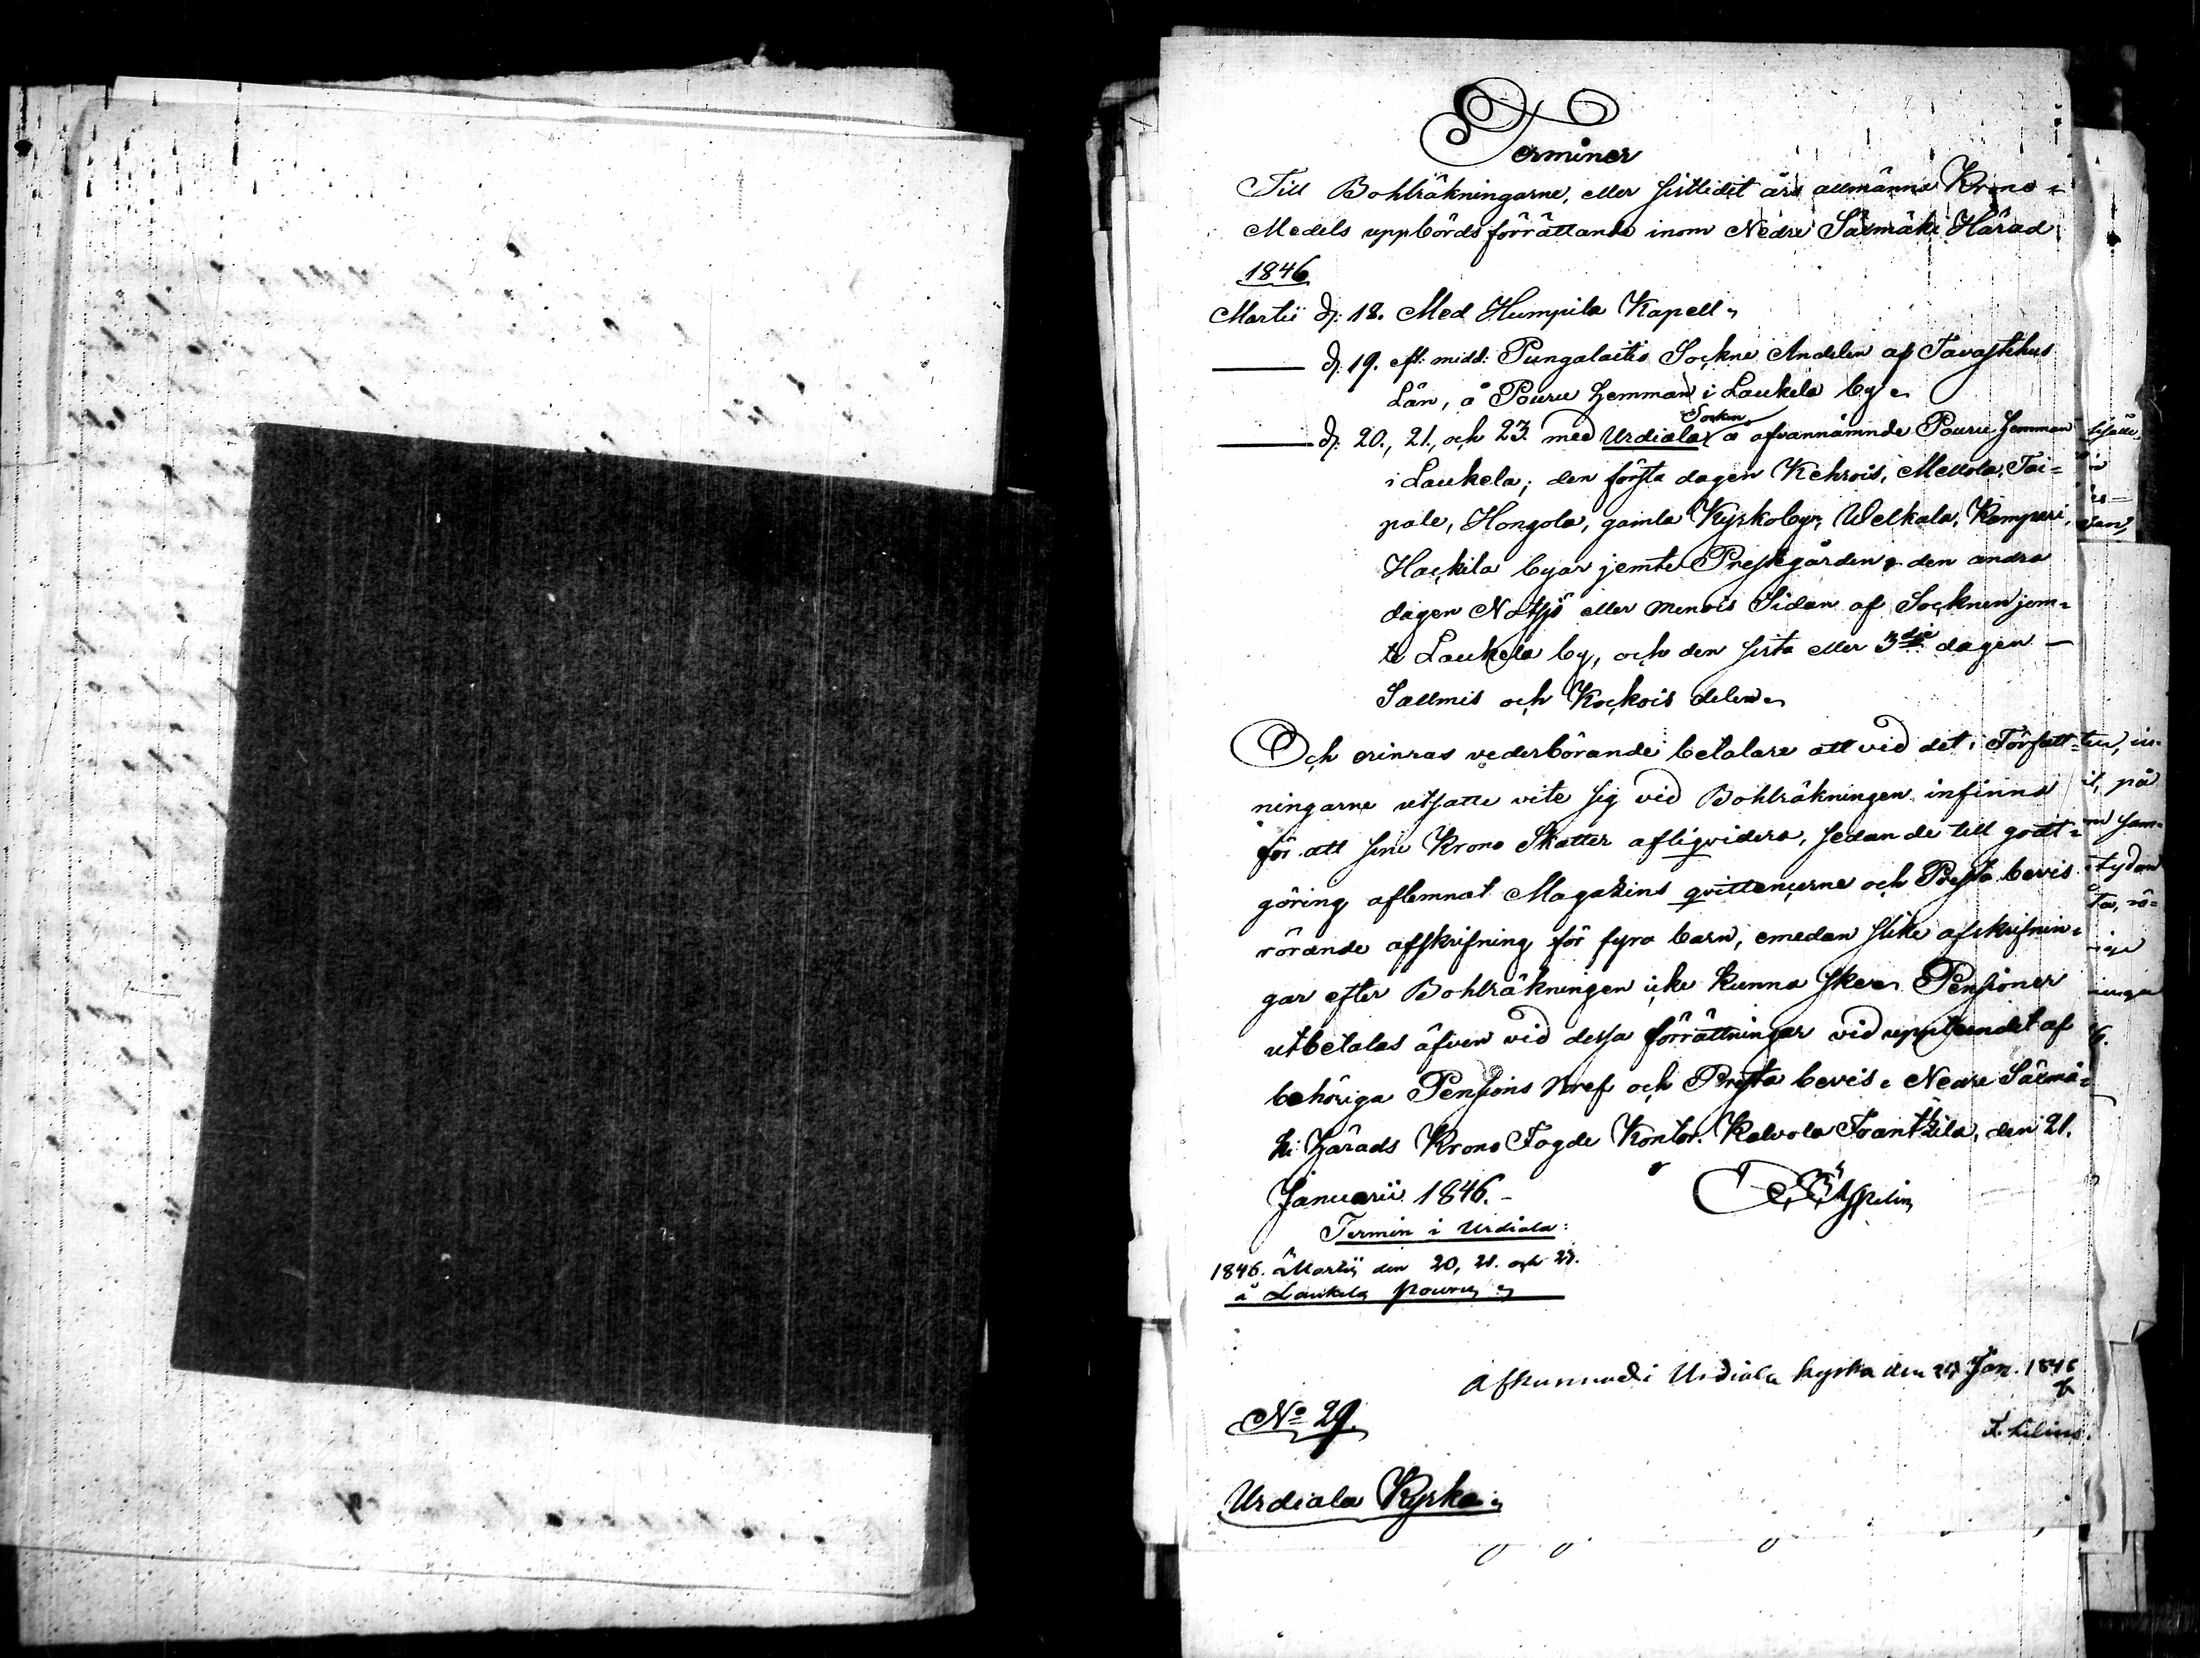 Terminer
Till Bohlräkningarne, eller sistledit års allmänna Krono-
Medels uppbörds förrättande inom Nedre Säxmäki Härad
1846
Martii d: 18. Med Humpila Kapell.
d: 19. eft: midd: Pungalaitio Sockne Andelen af Tavastehus
Län, å Pouru hemman i Laukela by.
Socken
d: 20., 21., och 23. med Urdiala å ofvannämnde Pouru hemman
i Laukela; den första dagen Kehrois, Mellola, Tai-
pale, Hongola, gamla Kyrkoby, Welkala, Kamperi,
Hackila byar jemte Prestgården, den andra
dagen Notsjö eller Menois Sidan af Socknen jem-
te Laukela by, och den sista eller 3die dagen
Sallmis och Kockois delen.
Och erinras vederbörande betalare att vid det i Författ-
ningarne utsatte vite sig vid Bohlräkningen infinna
för att sine Krono Skatter afliqvidera, sedan de till godt-
göring aflemnat Magazins qvittencerne och Presta bevis
rörande afskrifning för fyra barn, emedan slike afskrifnin-
gar efter Bohlräkningen icke kunna ske. Pensioner
utbetalas äfven vid dessa förrättningar vid uppteendet af
behöriga Pensions bref och Presta bevis. Nedre Säxmä-
ki Härads Krono Fogde Kontor. Kalvola Frantzila, den 21.
Januarii 1846.
Aspelin
Termin i Urdiala:
1846. Martii den 20, 21. och 23.
å Laukela Pouru
Afkunnad i Urdiala kyrka den Jan. 1846
No 29.
Urdiala Kyrka.